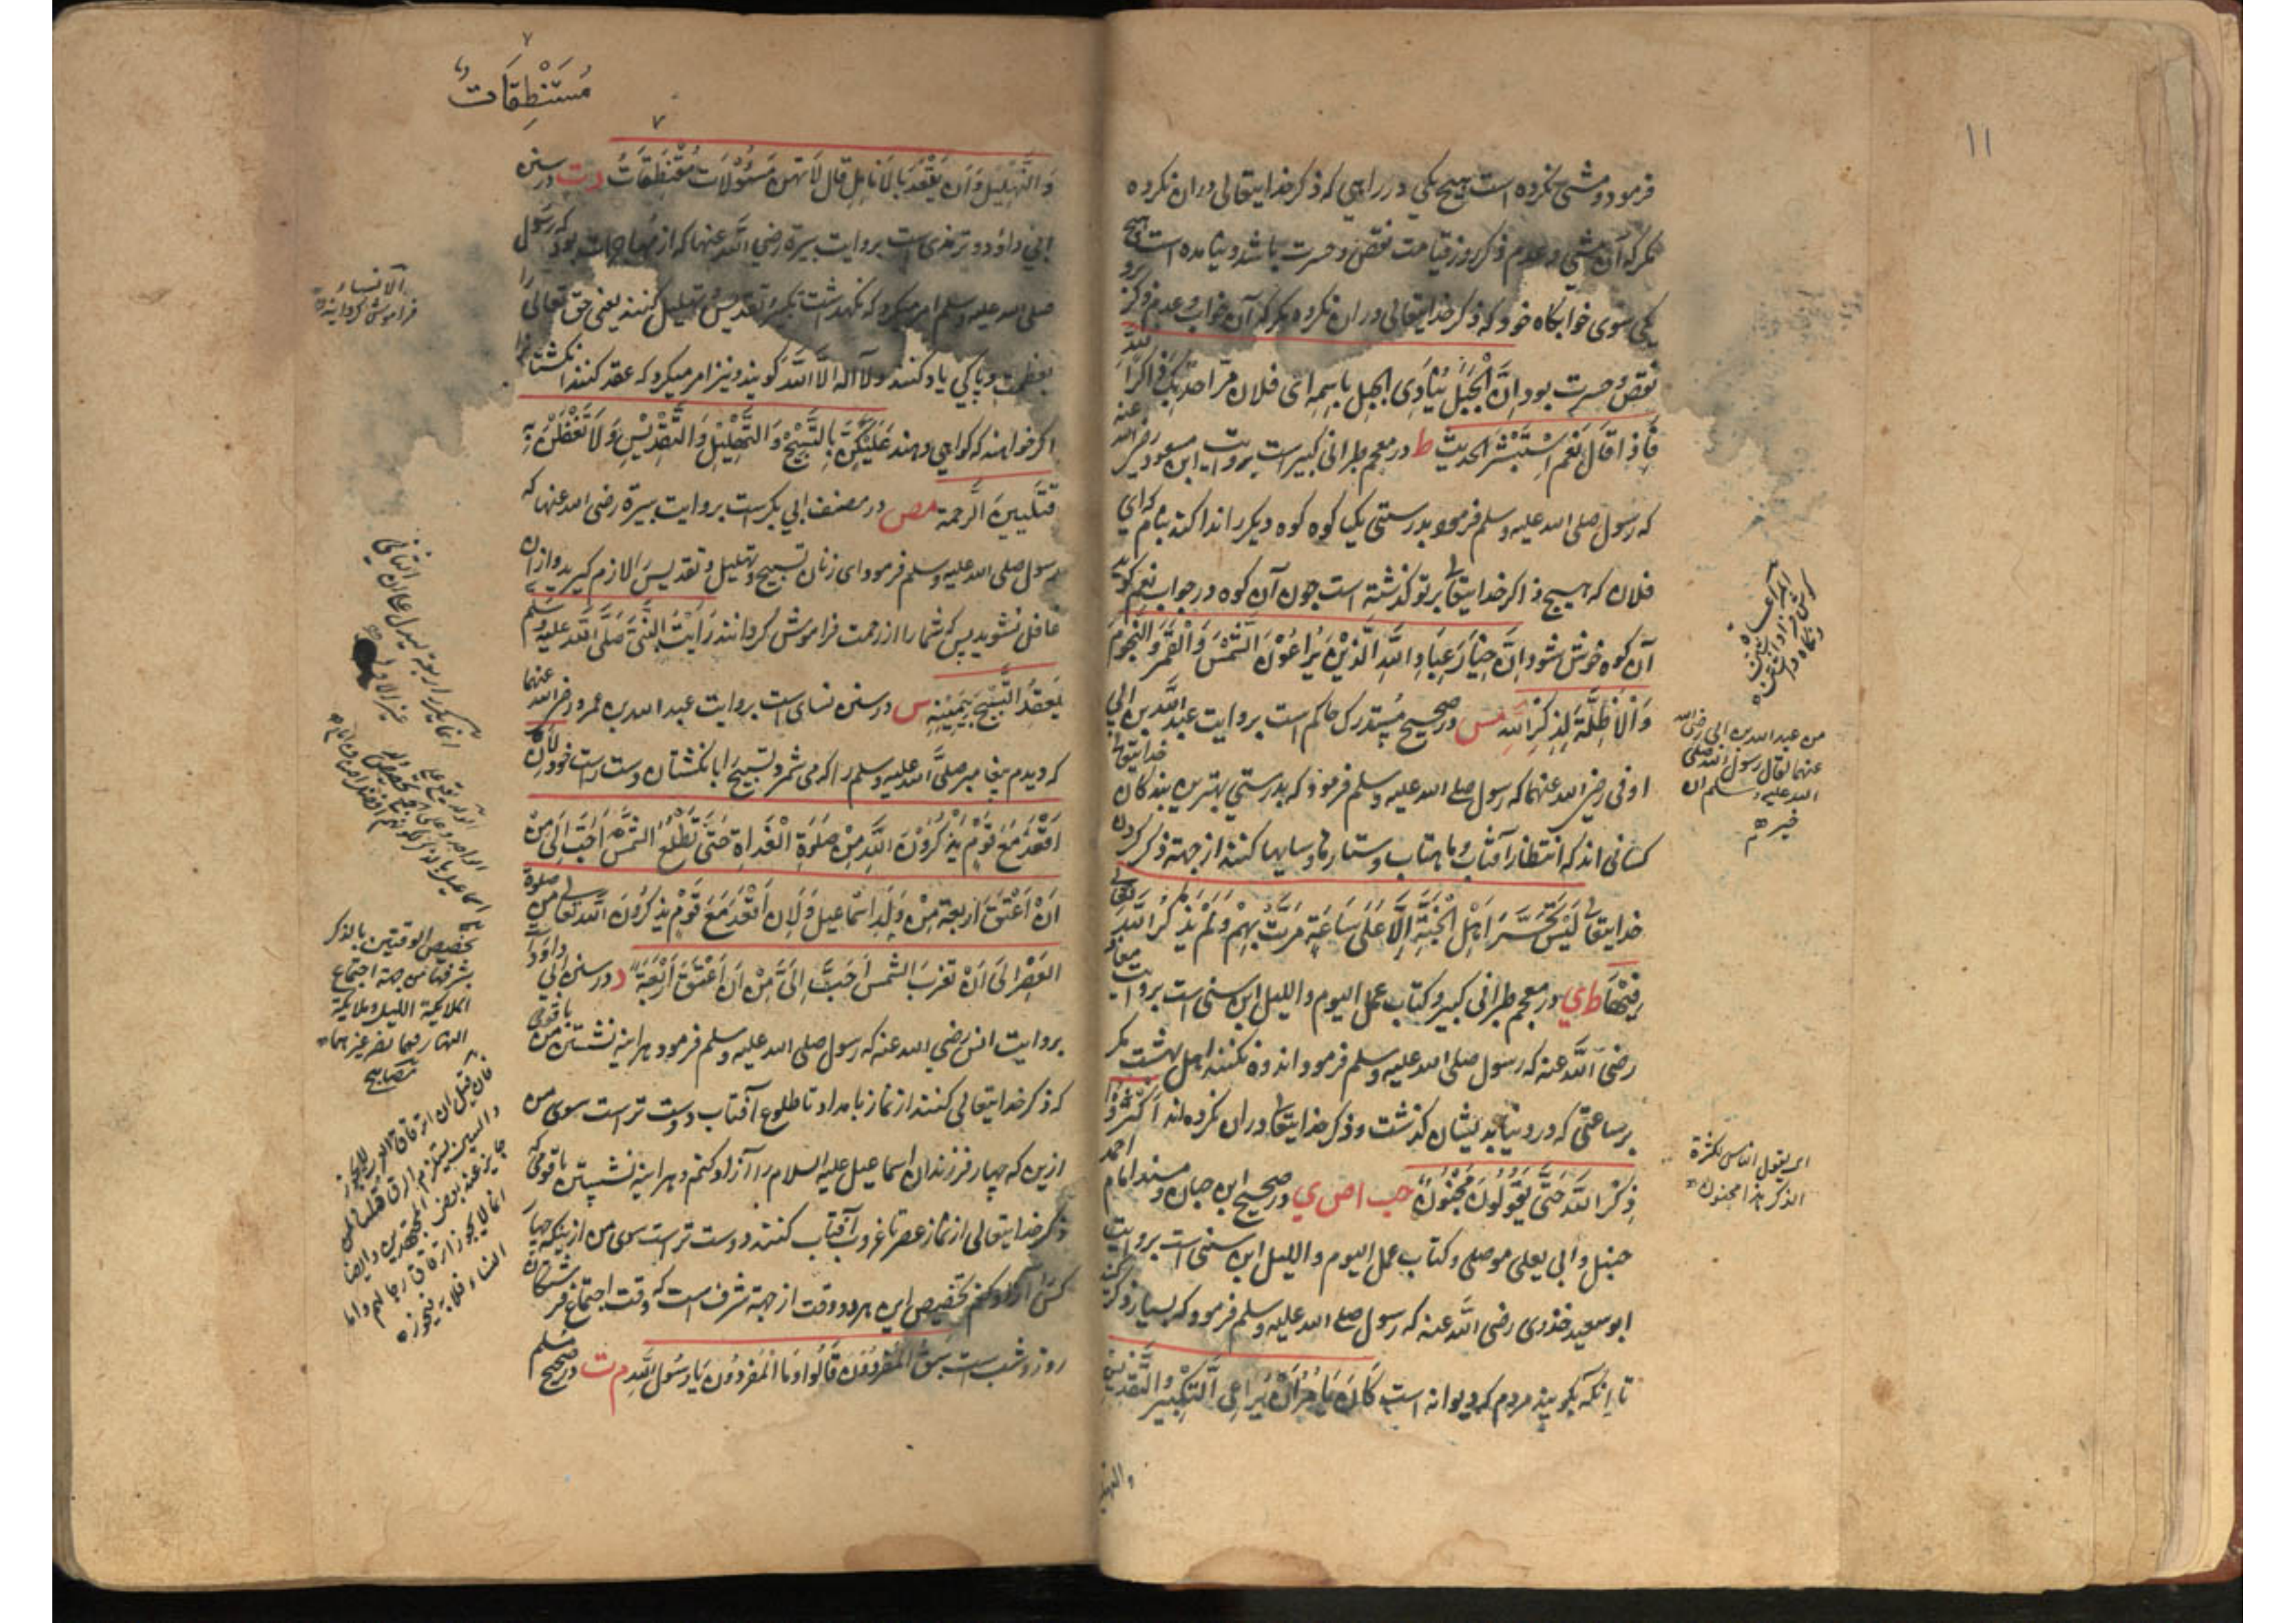 ۱۱
فرمود و مشی نکرده است هیچ یکی در راهی که ذکر خدایتعالی دران نکرده
مکر که آن مشی و عدم ذکر روز قیامت نقص و حسرت باشد و نیامده است هیچ
یکی سوی خوابگاه خود که ذکر خدایتعالی دران نکرده مکر که آن خواب و عدم ذکر برو
نقص و حسرت بود اِنَّ الْجَبَلَ یُنَادِی الجبل باسمِه ای فلان مرّ احد بک ذاکرا لله
فَاِذَا قَالَ نَعَم اِسْتَبْشَرَ الحدیث ط در معجم طبرانی کبیر است بروایت ابن مسعود رضی الله عنه
که رسول صلی الله علیه وسلم فرمود بدرستی یک کوه کوه دیکر را ندا کند بنام که ای
فلان که هیچ ذاکر خدایتعالی بر تو کذشته است چون آن کوه در جواب نعم کوید
آن کوه خوش شود اِنَّ خِیَارَ عِبَادِ اللّهِ الَّذِیْنَ یُرَاعُوْنَ الشَّمْسَ وَالْقَمَرَ وَ النُّجُومَ
وَالْاَظِلَّةَ لِذِکْرِ اللّهِ مس در صحیح مستدرک حاکم است بروایت عبد الله بن ابی
اوفی رضی الله عنهما که رسول صلی الله علیه وسلم فرمود که بدرستی بهترین بندکان خدایتعالی
کسانی اند که انتظار آفتاب و ماهتاب و ستارها و سایها کنند از جهة ذکر کردن
خدایتعالی لَیْسَ یَتَحَسَّرَ اَهْلُ الْجَنَّةِ اِلَّا عَلَی سَاعَةٍ مَرَّتْ بِهِمْ وَلَمْ یَذْکُرُ اللّهَ تعالی
فِیْهَا ط ی در معجم طبرانی کبیر و کتاب عمل الیوم واللیل ابن سنی است بروایت معاذ
رضی اللّه عنه که رسول صلی الله علیه وسلم فرمود اندوه نکنند اهل بهشت مکر
بر ساعتی که در دنیا بدیشان کذشت و ذکر خدایتعالی دران نکرده اند اَکْثِرُوْا
ذِکْرَ اللّهَ حَتَّی یَقُوْلُونَ مَجْنُوْنٌ حب ا ص ی در صحیح ابن حبان و مسند امام احمد
حنبل و ابی یعلی موصلی و کتاب عمل الیوم واللیل ابن سنی است بروایت
ابو سعید خدری رضی اللّه عنه که رسول صلی الله علیه وسلم فرمود که بسیار ذکر کنید
تا آنکه بکویند مردم که دیوانه است کَانَ یَاْمُرُ اَنْ یُرَاعِی التَّکْبِیْرُ وَالتَّقْدِیْسُ
من عبد الله بن ابی رضی الله
عنهما لقال رسول الله صلی
الله علیه وسلم ان
خیر
ای یقول الناس لکثرة
الذکر هذا مجنون
مُسْتَنْطِقَاتٌ
۷
۷
وَ التَّهْلِیْل وَ اَن یَعْقِدَ بِالْاَنَامِلِ قَال لِاَنّهنّ مَسْؤُلَات مُسْتَنطَقَاتٌ د ت در سنن
ابی داؤد و ترمذی است بروایت یسیرة رضی اللّه عنها که از مهاجرات بود که رسول
صلی الله علیه وسلم امر میکرد که نکهداشت تکبیر و تقدیس و تهلیل کنند یعنی حق تعالی را
بعظمت و پاکی یاد کنند و لا آله الاَّ اللّه کویند و نیز امر میکرد که عقد کنند انکشتان را
اکر خواهند که کواهی دهند عَلَیْکُنَّ بِالتَّسْبِیْحِ وَ التَّهْلِیْلِ وَ التَّقْدِیْسِ وَ لَا تَغْفُلْنَ
فَتَنْسِینَ الَّرحمة مص در مصنف ابی بکر است بروایت یسیرة رضی الله عنها که
رسول صلی الله علیه وسلم فرمود ای زنان تسبیح و تهلیل و تقدیس را لازم کیرید و ازان
غافل نشوید پس که شما را از رحمت فراموش کردانند رَاَیْتُ النَّبِیَّ صَلَّی اللّه علیه وسلّم
یَعقِدُ التَّسْبِیْح بِیَمِیْنِهِ س در سنن نسای است بروایت عبد الله بن عمرو رضی الله عنهما
که دیدم پیغامبر صلّی اللّه علیه وسلم را که می شمرد تسبیح را بانکشتان دست راست خود لَاَن
اَقْعُدَ مَعَ قَوْمٍ یَذْکُرُوْنَ اللّه مِنْ صَلَوةِ الْغَدَاةِ حَتَّی تَطْلُعَ الشَّمْسُ اَحَبُّ اِلَیَّ مِنْ
اَنْ اَعْتِقَ اَرْبَعَة مِنْ وُلْدِ اسْمَاعیل وَ لَاَن اَقْعُدَ مَعَ قَوْمٍ یذکُرُوْنَ اللّه تعالی من صلوة
العَصْرِ اِلَی اَنْ تغرب الشمس اَحَبُّ اِلَیَّ مِنْ اَن اَعْتَقَ اَرْبَعَةً د در سنن ابی داؤد
بروایت انس رضی الله عنه که رسول صلی الله علیه وسلم فرمود هراینه نشستن من با قومی
که ذکر خدایتعالی کنند از نماز بامداد تا طلوع آفتاب دوست تر است سوی من
ازین که چهار فرزندان اسماعیل علیه السلام را آزاد کنم و هراینه نشستن با قومی که
ذکر خدایتعالی از نماز عصر تا غروب آفتاب کنند دوست تر است سوی من ازینکه چهار
کس آزاد کنم تخصیص این هر دو وقت از جهة شرف است که وقت اجتماع فرشتکان
روز و شب است سَبَقَ الْمُفَرِّدُوْن قَالُوا وَمَا الْمُفَرِّدُون یَا رَسُول اللّهِ م ت در صحیح مسلم
الانساء
فراموش کردانیدن
تخصیص الوقتین بالذکر
بشرفهما من جهة اجتماع
الملایکة اللیل و ملایکة
النهار فیهما
مصابیح